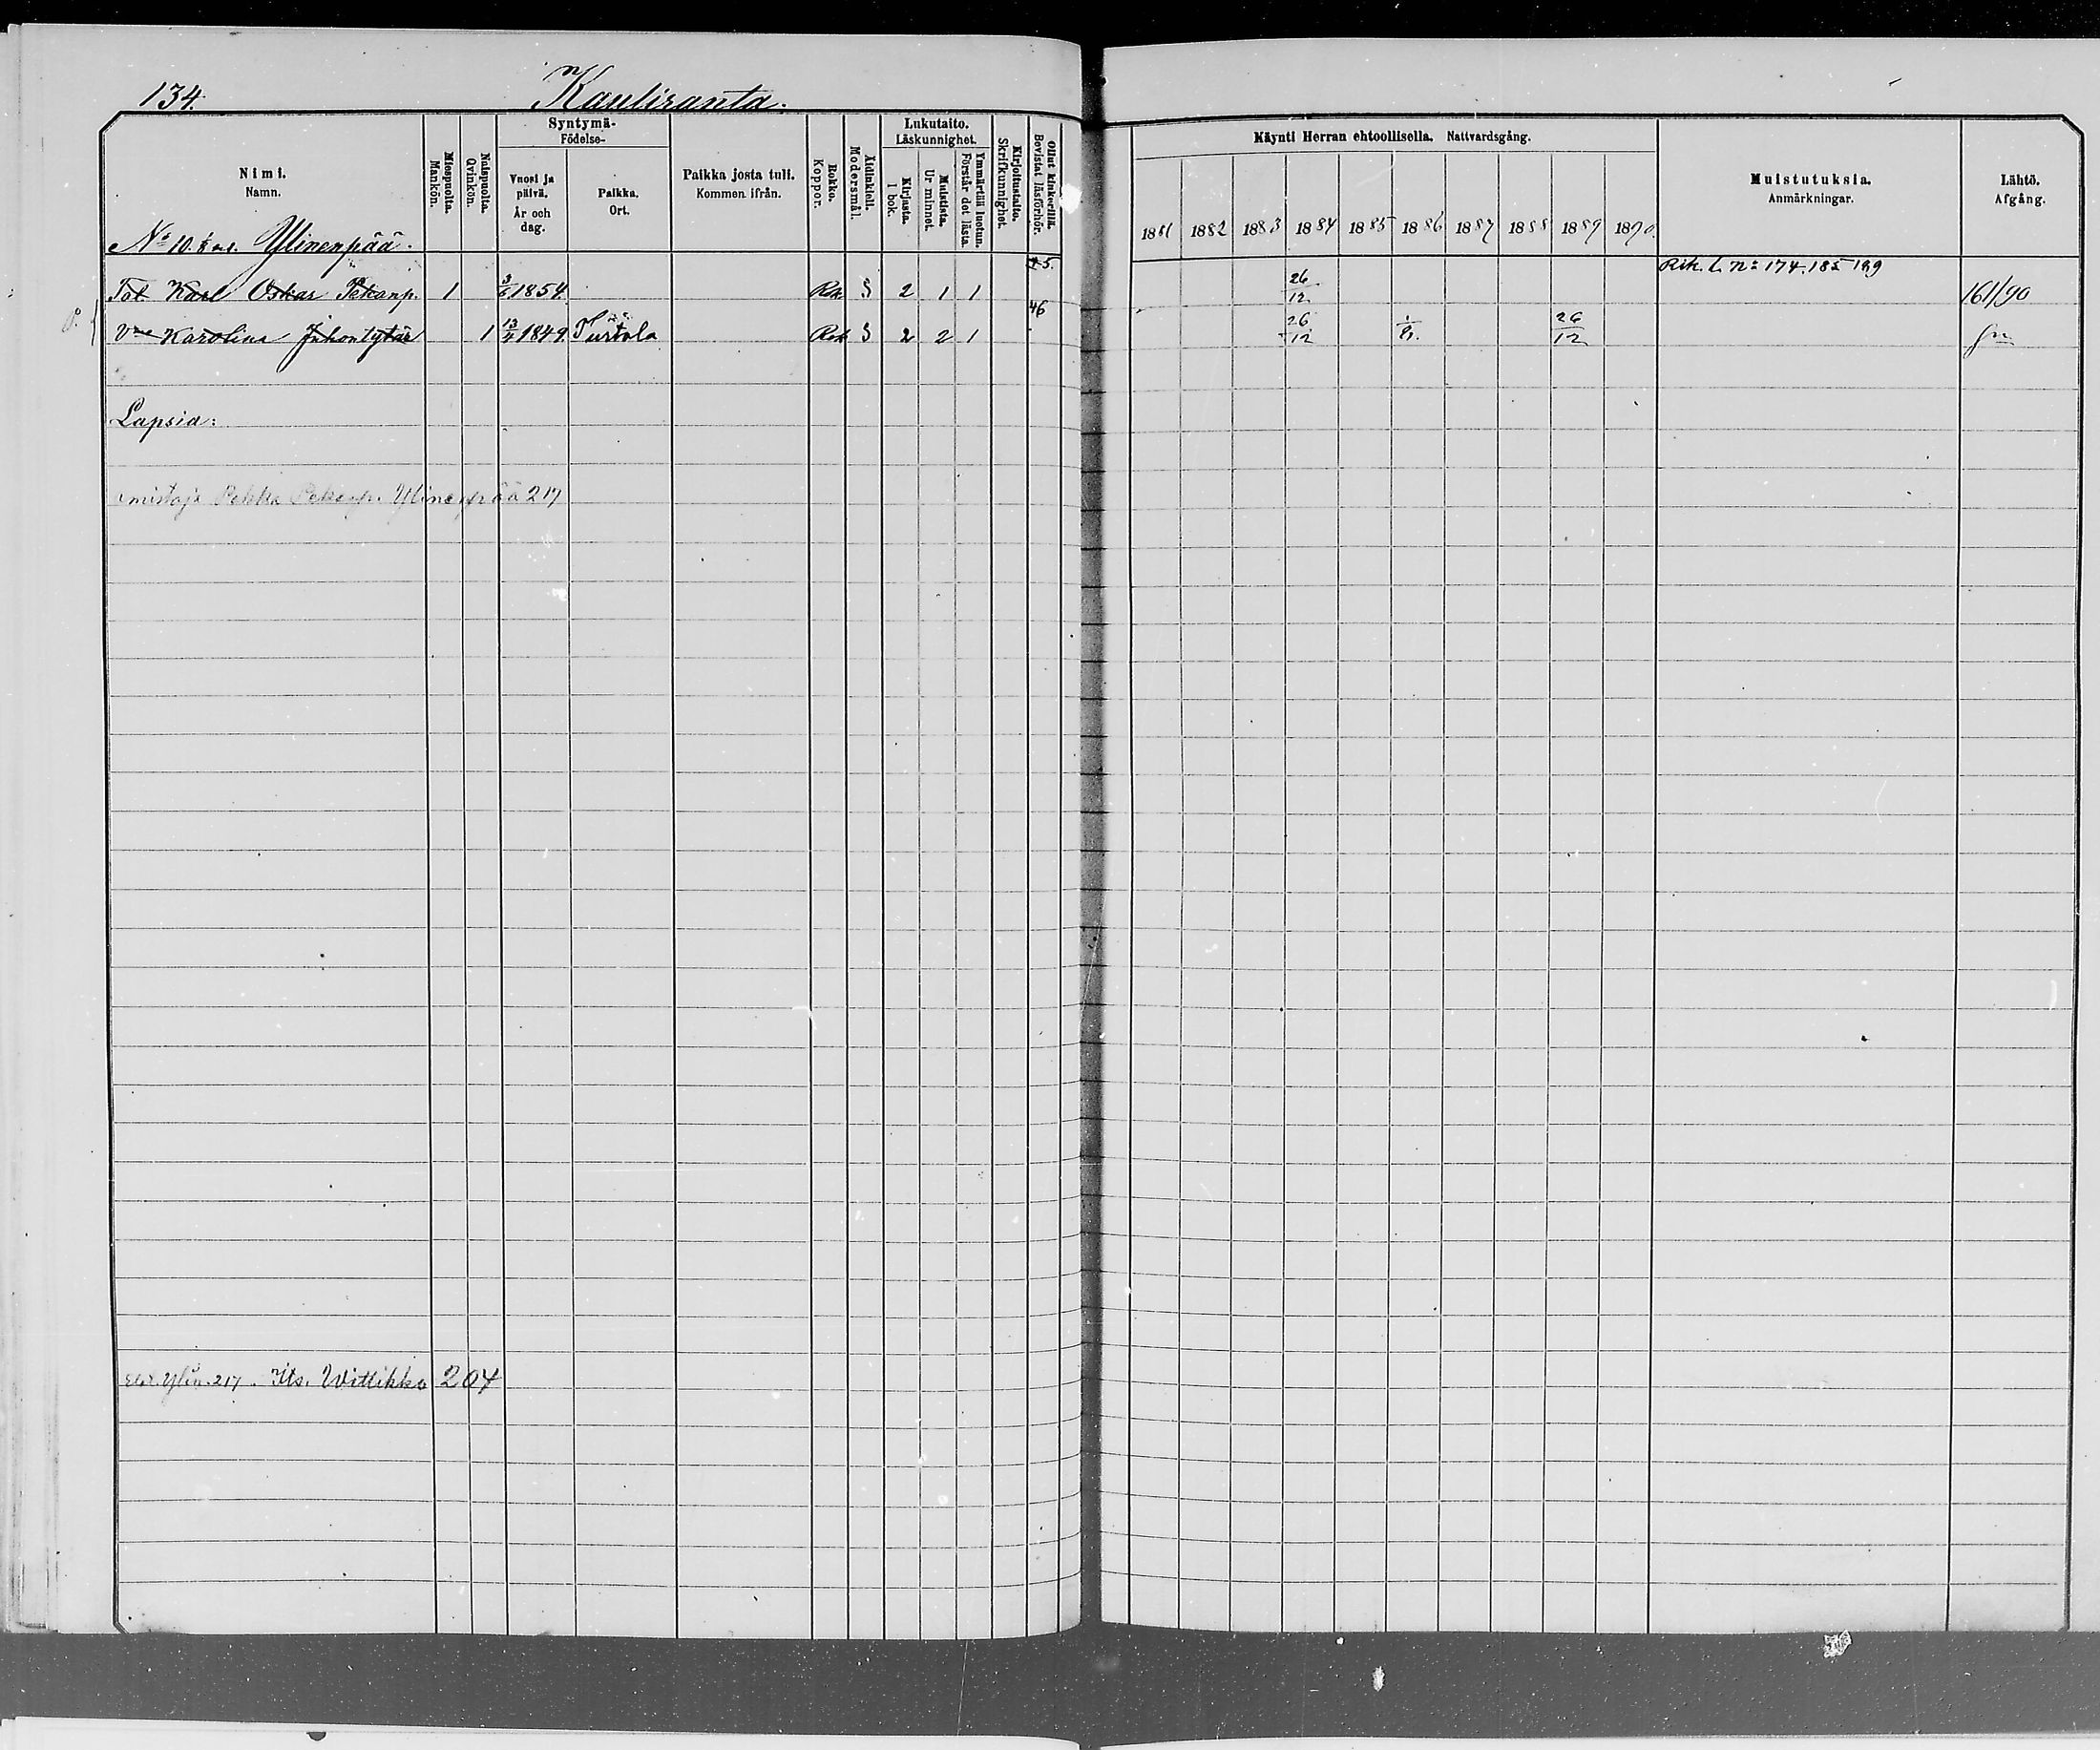 134. Kauliranta.
Nimi. Namn.
Miespuolta. Mankön.
Naispuolta. Qvinkön.
Syntymä- Födelse-
Vuosi ja päivä. År och dag.
Paikka. Ort.
Paikka josta tuli. Kommen ifrån.
Rokko. Koppor.
Äidinkieli. Modersmål.
Lukutaito. Läskunnighet.
Kirjasta. I bok.
Muistista. Ur minnet.
Ymmärtää luetun. Förstår det lästa.
Kirjoitustaito. Skrifkunnighet.
Ollut kinkerillä. Bevistat läsförhör.
Käynti Herran ehtoollisella. Nattvardsgång.
1881 1882 1883 1884 1885 1886 1887 1888 1889 1890.
Muistutuksia. Anmärkningar.
Lähtö. Afgång.
No 10. Ylinenpää.
Rik. l. No 174. 185 189
Tal Karl Oskar Pekanp. 1 3/6 1854. Rok. S 2 1 1 45. 26/12 161/90
Vmo Karolina Juhontytär 1 1849. Turtola Rok S 2 2 1 46 26/12 26/12
Lapsia:
omistaja Pekka Pekanp. Ylinenpää 217
Ylin. 217. Its. Wittikko 204